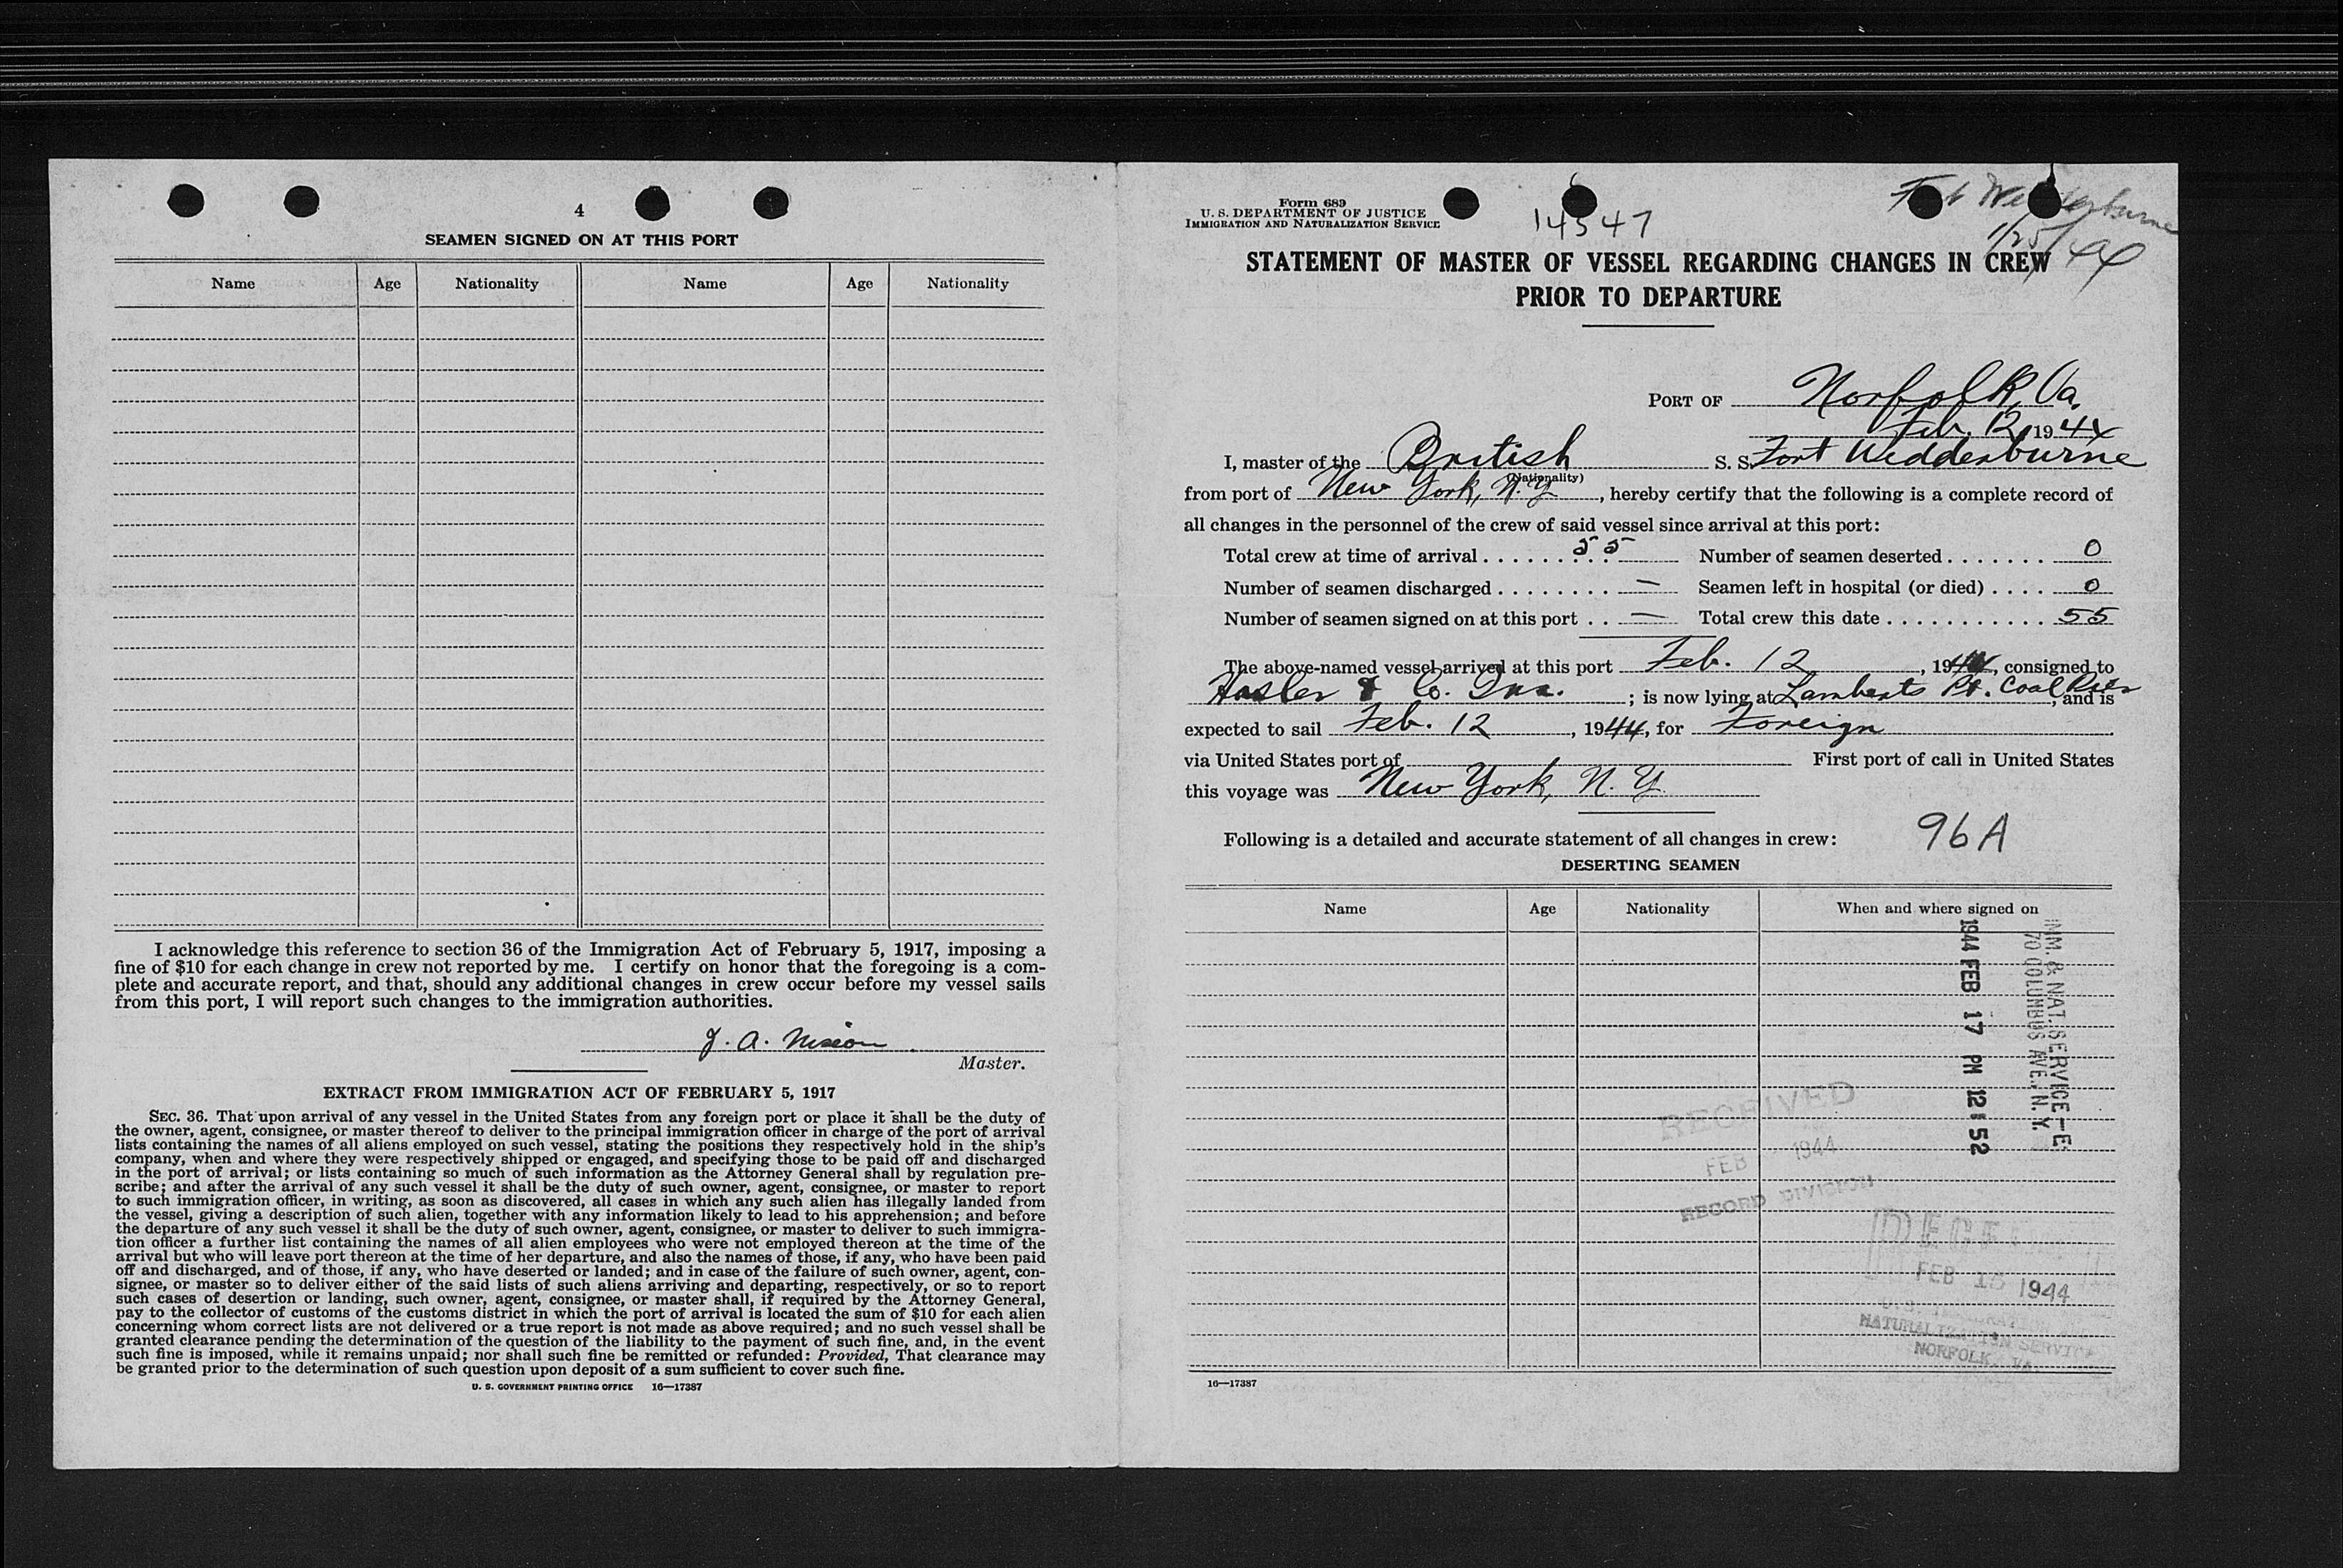 4
SEAMEN SIGNED ON AT THIS PORT
Name Age Nationality Name Age Nationality
I acknowledge this reference to section 36 of the Immigration Act of February 5, 1917, imposing a
fine of $10 for each change in crew not reported by me. I certify on honor that the foregoing is a com-
plete and accurate report, and that, should any additional changes in crew occur before my vessel sails
from this port, I will report such changes to the immigration authorities.
J. A. Nixon
Master.
EXTRACT FROM IMMIGRATION ACT OF FEBRUARY 5, 1917
SEC. 36. That upon arrival of any vessel in the United States from any foreign port or place it shall be the duty of
the owner, agent, consignee, or master thereof to deliver to the principal immigration officer in charge of the port of arrival
lists containing the names of all aliens employed on such vessel, stating the positions they respectively hold in the ship's
company, when and where they were respectively shipped or engaged, and specifying those to be paid off and discharged
in the port of arrival; or lists containing so much of such information as the Attorney General shall by regulation pre-
scribe; and after the arrival of any such vessel it shall be the duty of such owner, agent, consignee, or master to report
to such immigration officer, in writing, as soon as discovered, all cases in which any such alien has illegally landed from
the vessel, giving a description of such alien, together with any information likely to lead to his apprehension; and before
the departure of any such vessel it shall be the duty of such owner, agent, consignee, or master to deliver to such immigra-
tion officer a further list containing the names of all alien employees who were not employed thereon at the time of the
arrival but who will leave port thereon at the time of her departure, and also the names of those, if any, who have been paid
off and discharged, and of those, if any, who have deserted or landed; and in case of the failure of such owner, agent, con-
signee, or master so to deliver either of the said lists of such aliens arriving and departing, respectively, or so to report
such cases of desertion or landing, such owner, agent, consignee, or master shall, if required by the Attorney General,
pay to the collector of customs of the customs district in which the port of arrival is located the sum of $10 for each alien
concerning whom correct lists are not delivered or a true report is not made as above required; and no such vessel shall be
granted clearance pending the determination of the question of the liability to the payment of such fine, and, in the event
such fine is imposed, while it remains unpaid; nor shall such fine be remitted or refunded: Provided, That clearance may
be granted prior to the determination of such question upon deposit of a sum sufficient to cover such fine.
U. S. GOVERNMENT PRINTING OFFICE 16—17387
Form 689
U. S. DEPARTMENT OF JUSTICE
IMMIGRATION AND NATURALIZATION SERVICE
14547
1/25/44
STATEMENT OF MASTER OF VESSEL REGARDING CHANGES IN CREW
PRIOR TO DEPARTURE
PORT OF Norfolk, Va.
Feb. 12, 1944
I, master of the British S. S. Fort Wedderburne
(Nationality)
from port of New York, N. Y., hereby certify that the following is a complete record of
all changes in the personnel of the crew of said vessel since arrival at this port:
Total crew at time of arrival . . . . . . . . . 55 Number of seamen deserted . . . . . . . 0
Number of seamen discharged . . . . . . . . — Seamen left in hospital (or died) . . . . 0
Number of seamen signed on at this port . . — Total crew this date . . . . . . . . . . . . 55
The above-named vessel arrived at this port Feb. 12, 1944, consigned to
Hasler & Co. Inc. ; is now lying at Lamberts Pt. Coal Pier, and is
expected to sail Feb. 12, 1944, for Foreign
via United States port of First port of call in United States
this voyage was New York, N. Y.
Following is a detailed and accurate statement of all changes in crew: 96A
DESERTING SEAMEN
Name Age Nationality When and where signed on
IMM. & NAT. SERVICE—E
70 COLUMBUS AVE., N. Y.
1944 FEB 17 PM 12 52
RECEIVED
FEB 1944
RECORD DIVISION
FEB 15 1944
NATURALIZATION SERVICE
NORFOLK, VA.
16—17387